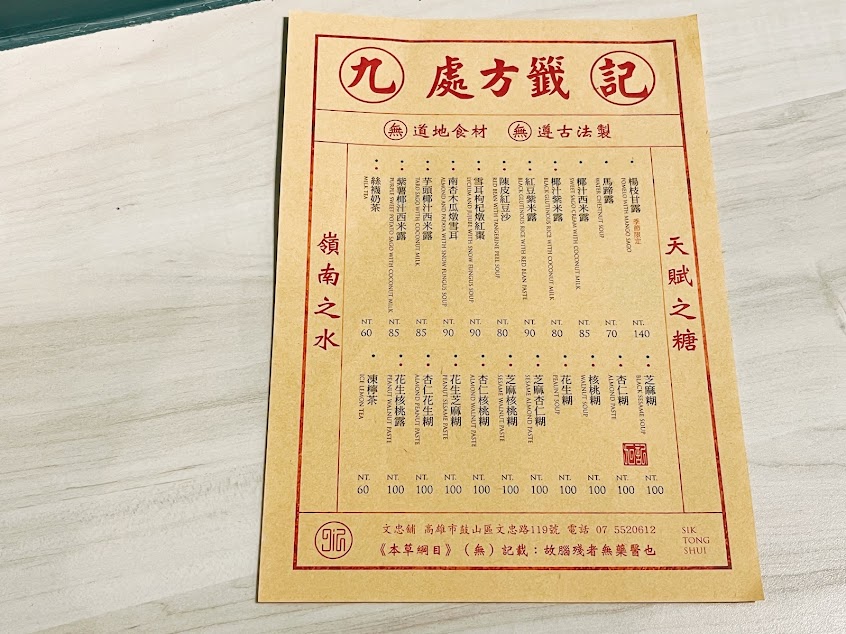 九 處方籤 記
無 道地食材 無 遵古法製
天賦之糖
楊枝甘露 季節限定
POMELO WITH MANGO SAGO
NT. 140
馬蹄露
WATER CHESTNUT SOUP
NT. 70
椰汁西米露
SWEET SAGO CREAM WITH COCONUT MILK
NT. 85
椰汁紫米露
BLACK GLUTINOUS RICE WITH COCONUT MILK
NT. 80
紅豆紫米露
BLACK GLUTINOUS RICE WITH RED BEAN PASTE
NT. 90
陳皮紅豆沙
RED BEAN WITH TANGERINE PEEL SOUP
NT. 80
雪耳枸杞燉紅棗
LYCIUM AND JUJUBE WITH SNOW FUNGUS SOUP
NT. 90
南杏木瓜燉雪耳
ALMOND AND PAPAYA WITH SNOW FUNGUS SOUP
NT. 90
芋頭椰汁西米露
TARO SAGO WITH COCONUT MILK
NT. 85
紫薯椰汁西米露
PURPLE SWEET POTATO SAGO WITH COCONUT MILK
NT. 85
絲襪奶茶
MILK TEA
NT. 60
芝麻糊
BLACK SESAME SOUP
NT. 100
杏仁糊
ALMOND PASTE
NT. 100
核桃糊
WALNUT SOUP
NT. 100
花生糊
PEAUNT SOUP
NT. 100
芝麻杏仁糊
SESAME ALMOND PASTE
NT. 100
芝麻核桃糊
SESAME WALNUT PASTE
NT. 100
杏仁核桃糊
ALMOND WALNUT PASTE
NT. 100
花生芝麻糊
PEANUT SESAME PASTE
NT. 100
杏仁花生糊
ALMOND PEANUT PASTE
NT. 100
花生核桃露
PEANUT WALNUT PASTE
NT. 100
凍檸茶
ICE LEMON TEA
NT. 60
嶺南之水
文忠舖 高雄市鼓山區文忠路119號 電話 07 5520612
《本草綱目》（無）記載：故腦殘者無藥醫也
SIK
TONG
SHUI